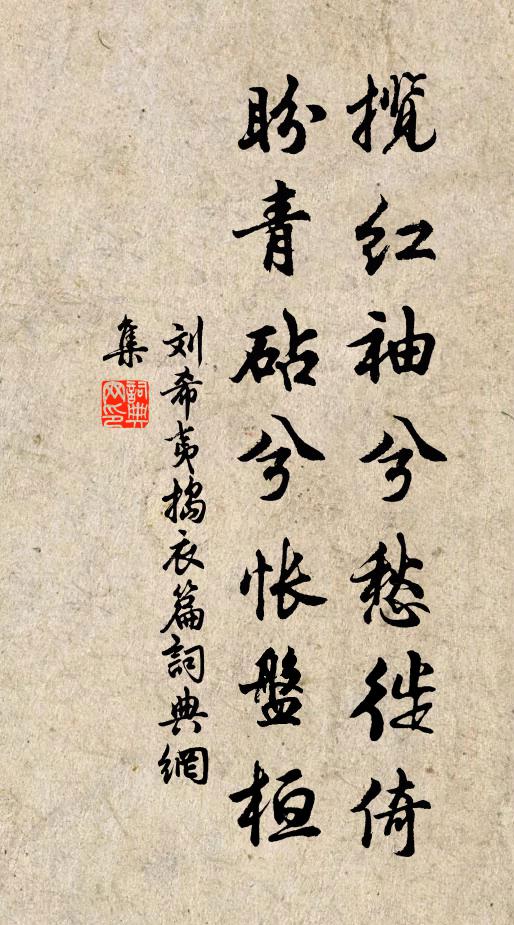 揽红袖兮愁徙倚
盼青砧兮怅盘桓
刘希夷捣衣篇词典網
集
詞典網印